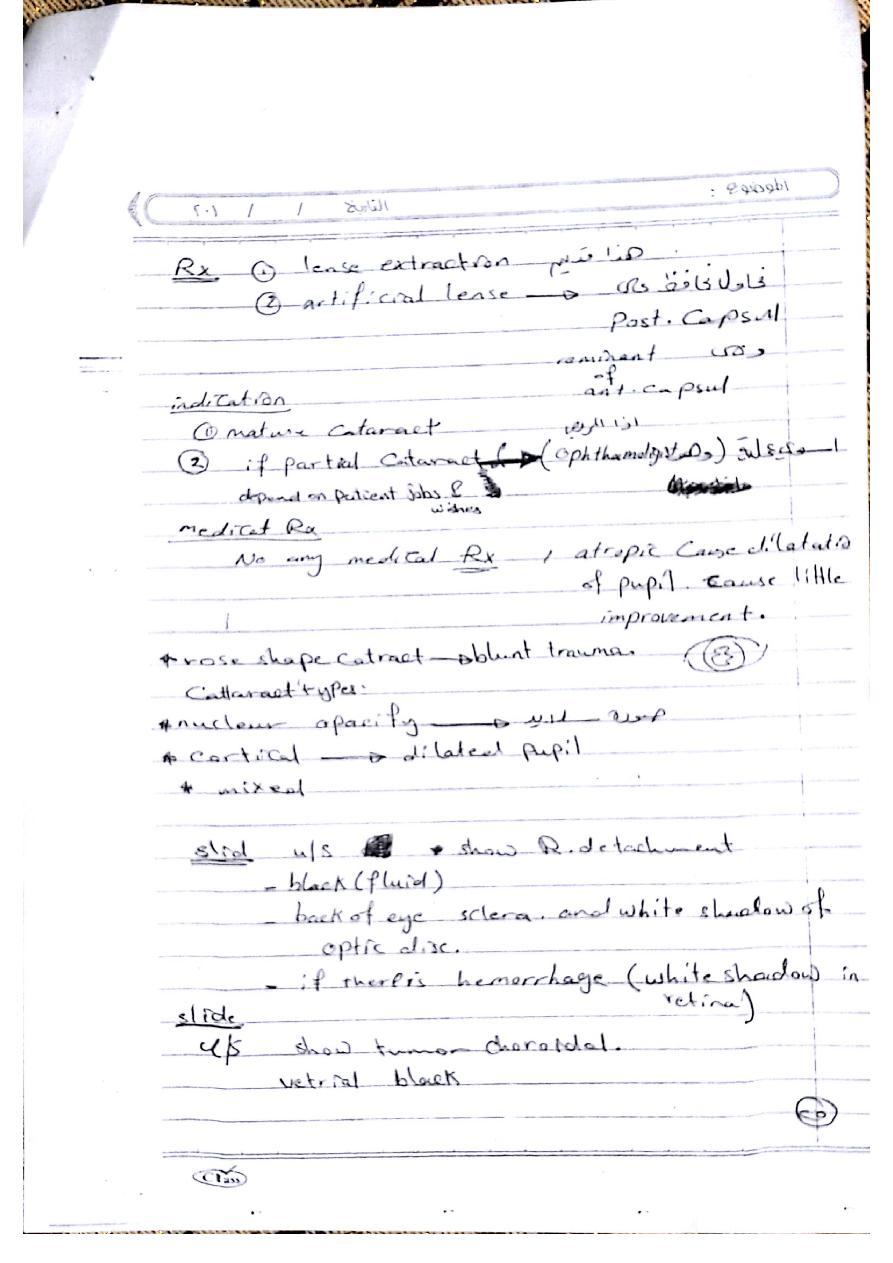 الموضوع :
التاريخ / / ٢٠١
Rx ① lense extraction هذا قديم
② artificial lense → نحاول نحافظ على
Post. Capsul
reminant
of
ant. capsul
indication
① mature Cataract اذا المريض
② if partial Cataract → (ophthamologist)
depend on patient jobs &
wishes
medical Rx
No any medical Rx , atropic Cause dilatatio
of pupil. Cause little
improvement.
* rose shape catract → blunt trauma.
Cattaract types:
* nuclear opacify →
* Cortical → dilated pupil
* mixed
slid u/s * show R. detachment
- black (fluid)
- back of eye sclera. and white shadow of
optic disc.
- if ther is hemorrhage (white shadow in
retina)
slide
u/s show tumor choroidal.
vetrial black
Class